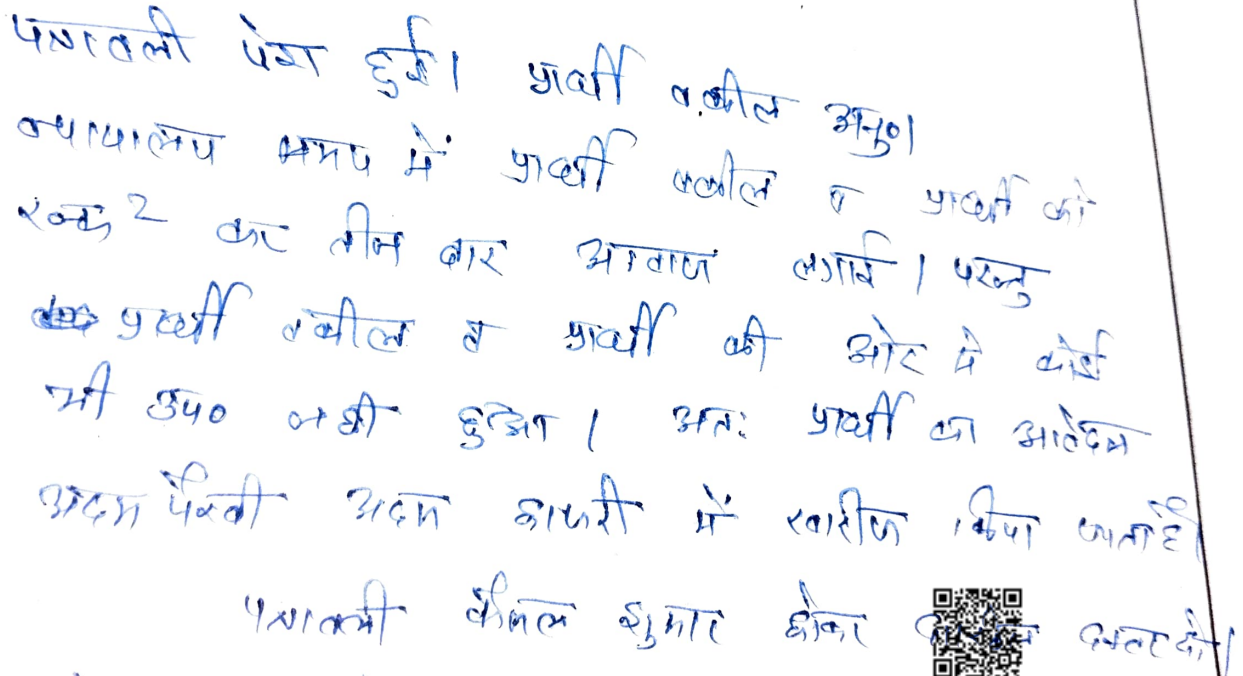 पत्रावली पेश हुई। प्रार्थी वकील अनु०।
न्यायालय समय में प्रार्थी वकील व प्रार्थी को
रूक 2 कर तीन बार आवाज लगाई। परन्तु
प्रार्थी वकील व प्रार्थी की ओर से कोई
भी उप० नही हुआ। अतः प्रार्थी का आवेदन
अदम पैरवी अदम हाजरी में खारीज किया जाता है।
पत्रावली फैसल शुमार होकर दफ्तर हो।